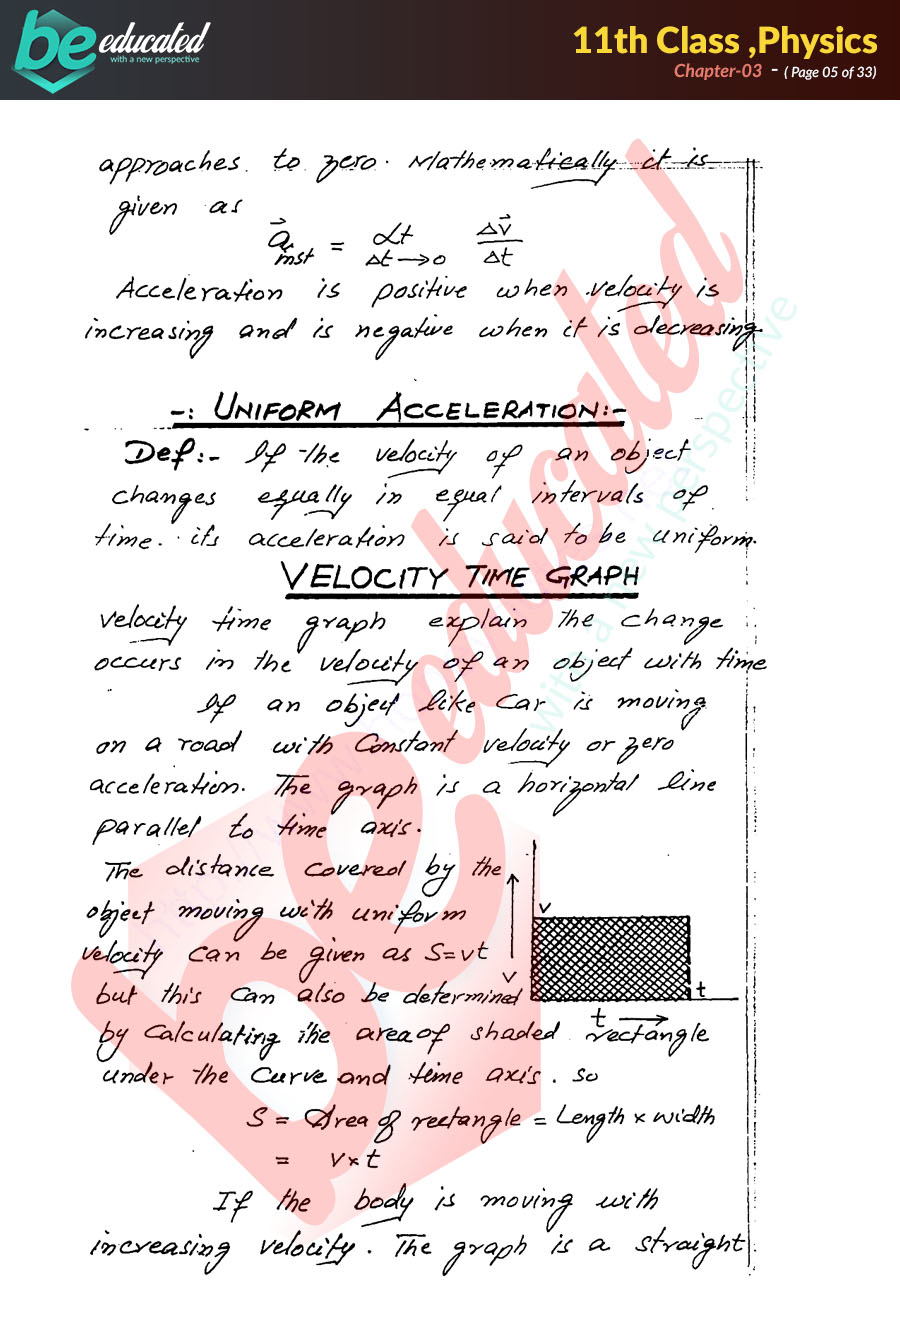 be educated
with a new perspective
11th Class ,Physics
Chapter-03 - ( Page 05 of 33)
approaches to zero. Mathematically it is
given as
a⃗inst = Lt Δt→0 Δv⃗/Δt
Acceleration is positive when velocity is
increasing and is negative when it is decreasing.
-: UNIFORM ACCELERATION:-
Def:- If the velocity of an object
changes equally in equal intervals of
time. its acceleration is said to be uniform.
VELOCITY TIME GRAPH
velocity time graph explain the change
occurs in the velocity of an object with time
If an object like Car is moving
on a road with Constant velocity or zero
acceleration. The graph is a horizontal line
parallel to time axis.
The distance covered by the
object moving with uniform
velocity can be given as S=vt
but this can also be determined
by calculating the area of shaded rectangle
under the curve and time axis. so
S = Area of rectangle = Length × width
= v×t
If the body is moving with
increasing velocity. The graph is a straight
v
v
t
t
be educated
with a new perspective